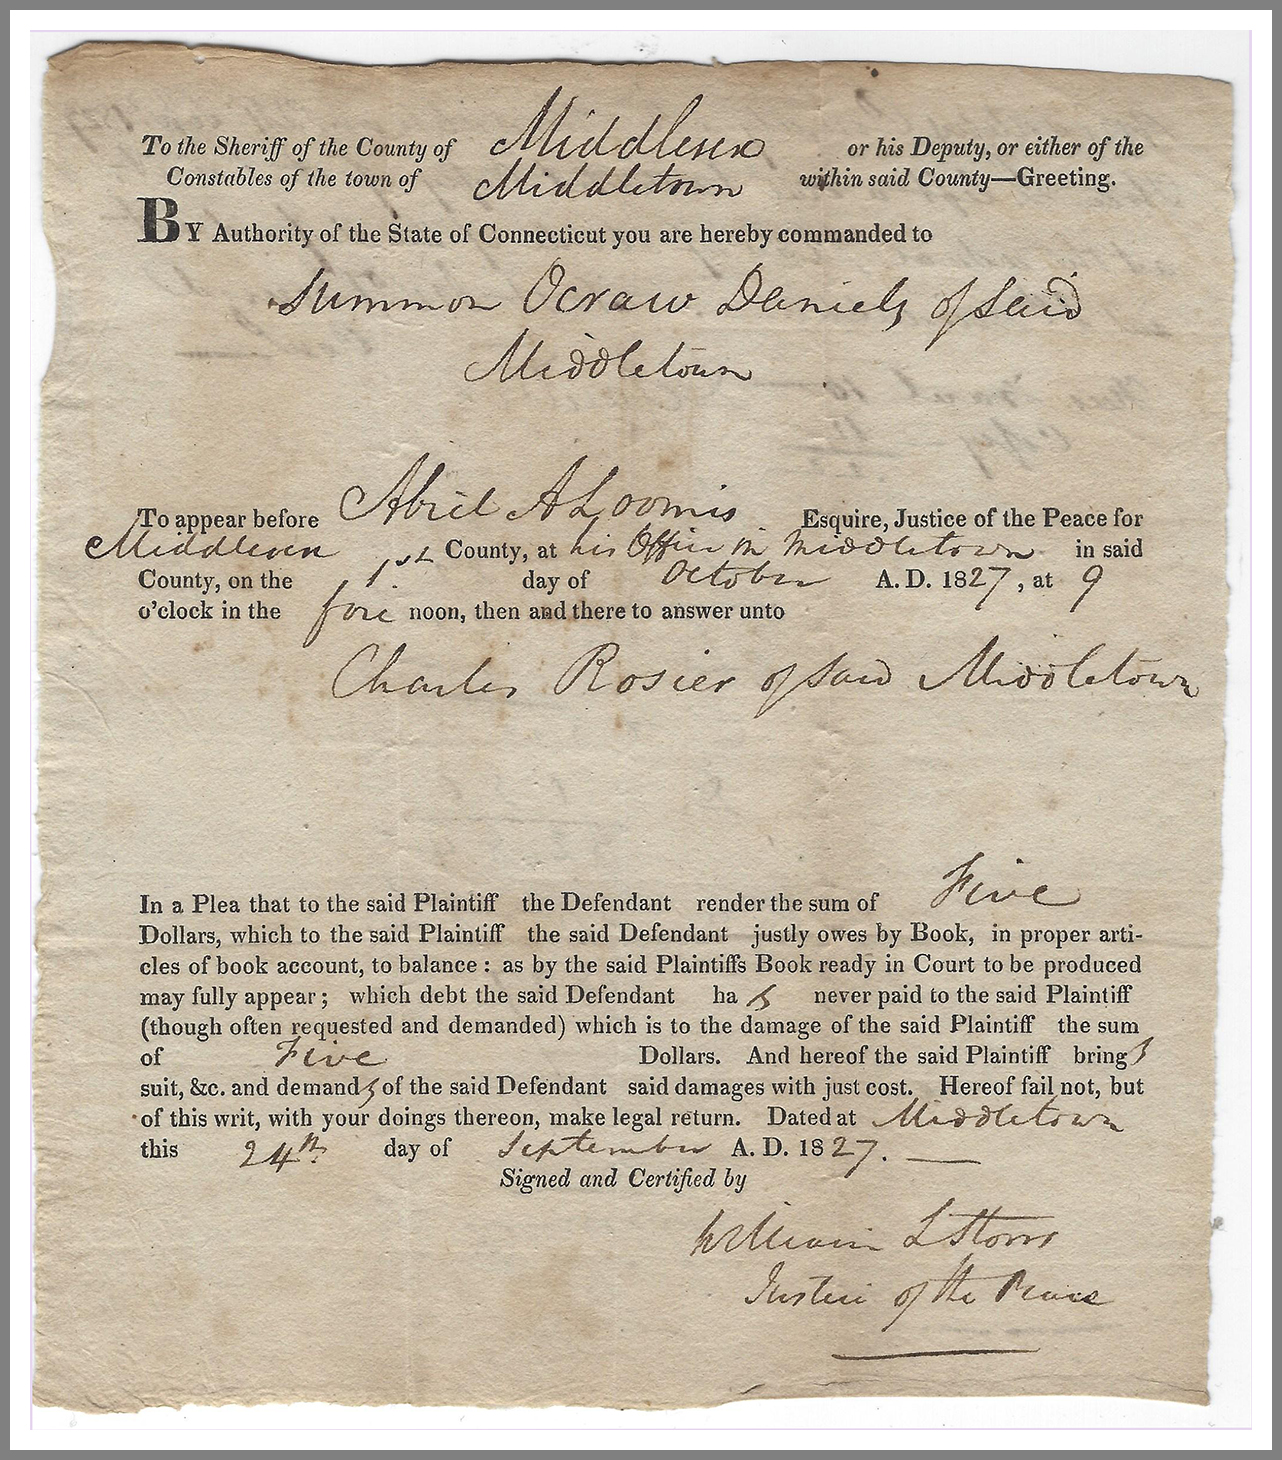 To the Sheriff of the County of Middlesex or his Deputy, or either of the
Constables of the town of Middletown within said County—Greeting.
BY Authority of the State of Connecticut you are hereby commanded to
Summon Ocraw Daniels of said
Middletown
To appear before Abiel A Loomis Esquire, Justice of the Peace for
Middlesex County, at his Office in Middletown in said
County, on the 1st day of October A. D. 1827, at 9
o'clock in the fore noon, then and there to answer unto
Charles Rosier of said Middletown
In a Plea that to the said Plaintiff the Defendant render the sum of Five
Dollars, which to the said Plaintiff the said Defendant justly owes by Book, in proper arti-
cles of book account, to balance: as by the said Plaintiffs Book ready in Court to be produced
may fully appear; which debt the said Defendant ha s never paid to the said Plaintiff
(though often requested and demanded) which is to the damage of the said Plaintiff the sum
of Five Dollars. And hereof the said Plaintiff brings
suit, &c. and demands of the said Defendant said damages with just cost. Hereof fail not, but
of this writ, with your doings thereon, make legal return. Dated at Middletown
this 24th day of September A. D. 1827.
Signed and Certified by
William L Storrs
Justice of the Peace